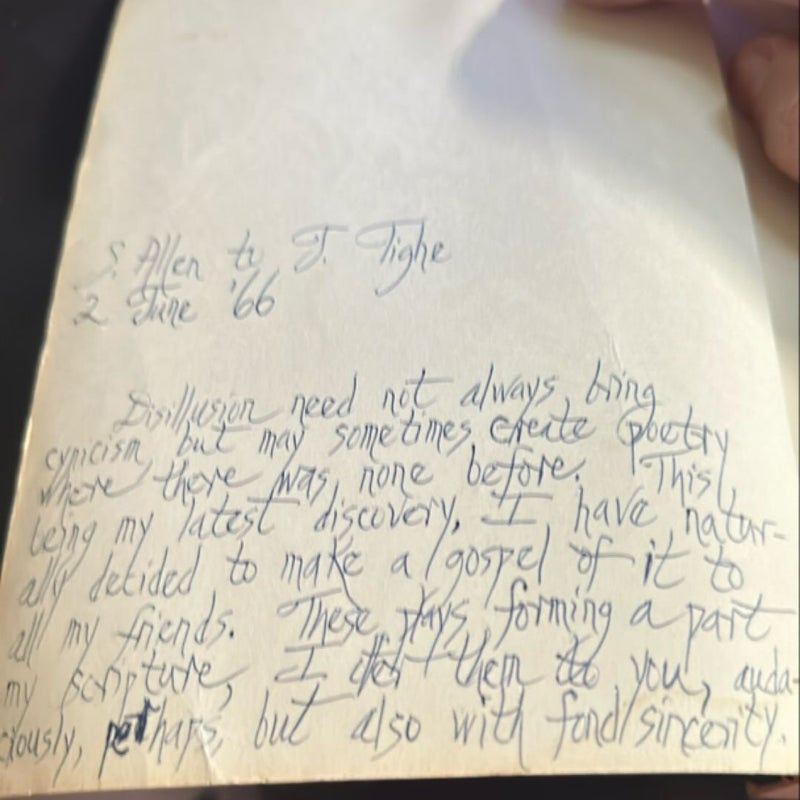 S. Allen to J. Tighe
2 June '66
Disillusion need not always bring
cynicism but may sometimes create poetry
where there was none before. This
being my latest discovery, I have natur-
ally decided to make a gospel of it to
all my friends. These plays forming a part
my scripture, I them to you, auda-
ciously, perhaps, but also with fond sincerity.